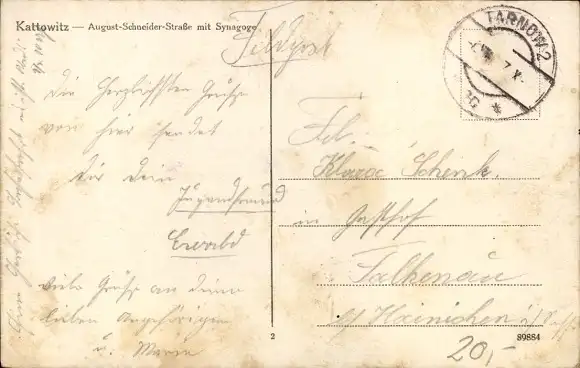 Kattowitz — August-Schneider-Straße mit Synagoge
Feldpost
TARNOW 2
Die herzlichsten Grüße
von hier sendet
Dir Dein
Jugendfreund
Ewald
viele Grüße an Deine
lieben Angehörigen
u. Maria
Frl.
Klara Schenk
in Gasthof
Falkenau
b/ Hainichen i/ Sachs
20,-
2
89884